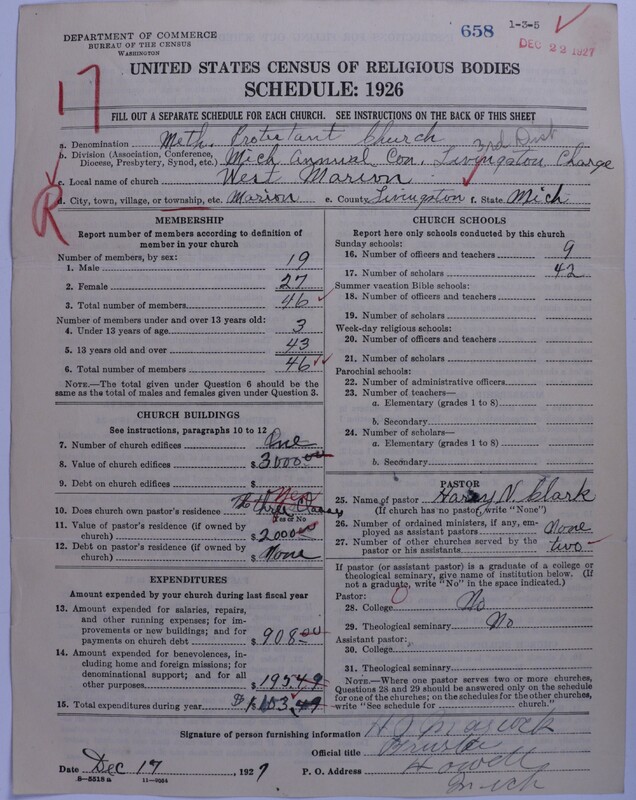 DEPARTMENT OF COMMERCE
BUREAU OF THE CENSUS
WASHINGTON
658
1-3-5
DEC 22 1927
17
UNITED STATES CENSUS OF RELIGIOUS BODIES
SCHEDULE: 1926
FILL OUT A SEPARATE SCHEDULE FOR EACH CHURCH. SEE INSTRUCTIONS ON THE BACK OF THIS SHEET
a. Denomination Meth. Protestant Church
b. Division (Association, Conference, Diocese, Presbytery, Synod, etc.) Mich Annual Con. Livingston Charge 3rd Dist
c. Local name of church West Marion
R
d. City, town, village, or township, etc. Marion e. County Livingston f. State Mich
MEMBERSHIP
Report number of members according to definition of member in your church
Number of members, by sex:
1. Male 19
2. Female 27
3. Total number of members 46
Number of members under and over 13 years old:
4. Under 13 years of age 3
5. 13 years old and over 43
6. Total number of members 46
NOTE.—The total given under Question 6 should be the same as the total of males and females given under Question 3.
CHURCH BUILDINGS
See instructions, paragraphs 10 to 12
7. Number of church edifices One
8. Value of church edifices $ 3000.00
9. Debt on church edifices $
10. Does church own pastor's residence? Yes or No
11. Value of pastor's residence (if owned by church) $ 2000.00
12. Debt on pastor's residence (if owned by church) $ None
EXPENDITURES
Amount expended by your church during last fiscal year
13. Amount expended for salaries, repairs, and other running expenses; for improvements or new buildings; and for payments on church debt $ 908.00
14. Amount expended for benevolences, including home and foreign missions; for denominational support; and for all other purposes $ 195.49
15. Total expenditures during year $ 1103.49
CHURCH SCHOOLS
Report here only schools conducted by this church
Sunday schools:
16. Number of officers and teachers 9
17. Number of scholars 42
Summer vacation Bible schools:
18. Number of officers and teachers
19. Number of scholars
Week-day religious schools:
20. Number of officers and teachers
21. Number of scholars
Parochial schools:
22. Number of administrative officers
23. Number of teachers—
a. Elementary (grades 1 to 8)
b. Secondary
24. Number of scholars—
a. Elementary (grades 1 to 8)
b. Secondary
PASTOR
25. Name of pastor Harry V. Clark
(If church has no pastor, write "None")
26. Number of ordained ministers, if any, employed as assistant pastors None
27. Number of other churches served by the pastor or his assistants two
If pastor (or assistant pastor) is a graduate of a college or theological seminary, give name of institution below. (If not a graduate, write "No" in the space indicated.)
Pastor:
28. College No
29. Theological seminary No
Assistant pastor:
30. College
31. Theological seminary
NOTE.—Where one pastor serves two or more churches, Questions 28 and 29 should be answered only on the schedule for one of the churches; on the schedules for the other churches, write "See schedule for church."
Signature of person furnishing information
Official title Trustee
Date Dec 17 , 1927 P. O. Address Howell
Mich
8—5518 a